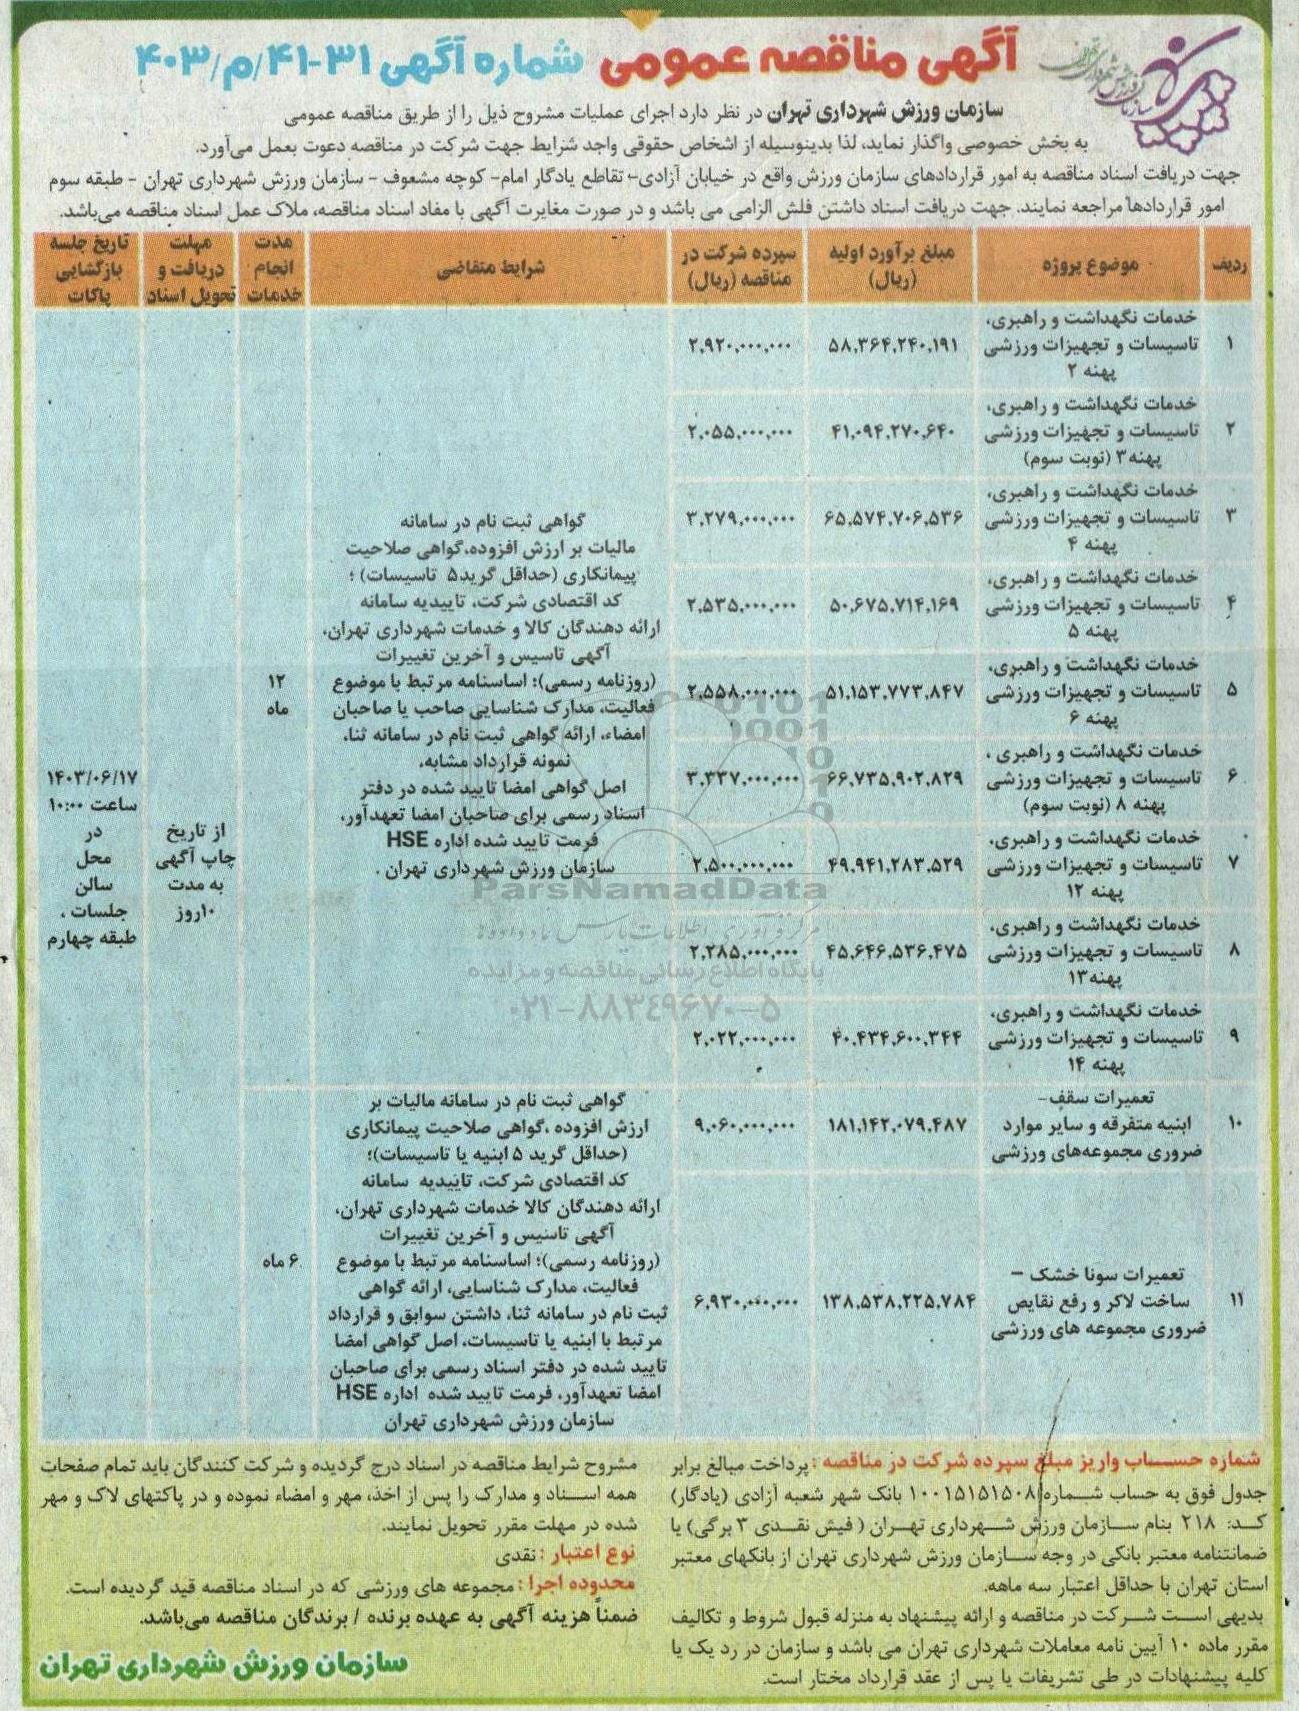 آگهی مناقصه عمومی شماره آگهی ۳۱-۴۱/م/۴۰۳
سازمان ورزش شهرداری تهران در نظر دارد اجرای عملیات مشروح ذیل را از طریق مناقصه عمومی
به بخش خصوصی واگذار نماید، لذا بدینوسیله از اشخاص حقوقی واجد شرایط جهت شرکت در مناقصه دعوت بعمل می‌آورد.
جهت دریافت اسناد مناقصه به امور قراردادهای سازمان ورزش واقع در خیابان آزادی- تقاطع یادگار امام- کوچه مشعوف - سازمان ورزش شهرداری تهران - طبقه سوم
امور قراردادها مراجعه نمایند. جهت دریافت اسناد داشتن فلش الزامی می باشد و در صورت مغایرت آگهی با مفاد اسناد مناقصه، ملاک عمل اسناد مناقصه می‌باشد.
ردیف
موضوع پروژه
مبلغ برآورد اولیه
(ریال)
سپرده شرکت در
مناقصه (ریال)
شرایط متقاضی
مدت
انجام
خدمات
مهلت
دریافت و
تحویل اسناد
تاریخ جلسه
بازگشایی
پاکات
۱
خدمات نگهداشت و راهبری،
تاسیسات و تجهیزات ورزشی
پهنه ۲
۵۸,۳۶۴,۲۴۰,۱۹۱
۲,۹۲۰,۰۰۰,۰۰۰
۲
خدمات نگهداشت و راهبری،
تاسیسات و تجهیزات ورزشی
پهنه۳ (نوبت سوم)
۴۱,۰۹۴,۲۷۰,۶۴۰
۲,۰۵۵,۰۰۰,۰۰۰
۳
خدمات نگهداشت و راهبری،
تاسیسات و تجهیزات ورزشی
پهنه ۴
۶۵,۵۷۴,۷۰۶,۵۳۶
۳,۲۷۹,۰۰۰,۰۰۰
۴
خدمات نگهداشت و راهبری،
تاسیسات و تجهیزات ورزشی
پهنه ۵
۵۰,۶۷۵,۷۱۴,۱۶۹
۲,۵۳۵,۰۰۰,۰۰۰
۵
خدمات نگهداشت و راهبری،
تاسیسات و تجهیزات ورزشی
پهنه ۶
۵۱,۱۵۳,۷۷۳,۸۴۷
۲,۵۵۸,۰۰۰,۰۰۰
۶
خدمات نگهداشت و راهبری ،
تاسیسات و تجهیزات ورزشی
پهنه ۸ (نوبت سوم)
۶۶,۷۳۵,۹۰۲,۸۲۹
۳,۳۳۷,۰۰۰,۰۰۰
۷
خدمات نگهداشت و راهبری،
تاسیسات و تجهیزات ورزشی
پهنه ۱۲
۴۹,۹۴۱,۲۸۳,۵۲۹
۲,۵۰۰,۰۰۰,۰۰۰
۸
خدمات نگهداشت و راهبری،
تاسیسات و تجهیزات ورزشی
پهنه۱۳
۴۵,۶۴۶,۵۳۶,۴۷۵
۲,۲۸۵,۰۰۰,۰۰۰
۹
خدمات نگهداشت و راهبری،
تاسیسات و تجهیزات ورزشی
پهنه ۱۴
۴۰,۴۳۴,۶۰۰,۳۴۴
۲,۰۲۲,۰۰۰,۰۰۰
گواهی ثبت نام در سامانه
مالیات بر ارزش افزوده،گواهی صلاحیت
پیمانکاری (حداقل گرید۵ تاسیسات) ؛
کد اقتصادی شرکت، تاییدیه سامانه
ارائه دهندگان کالا و خدمات شهرداری تهران،
آگهی تاسیس و آخرین تغییرات
(روزنامه رسمی)؛ اساسنامه مرتبط با موضوع
فعالیت، مدارک شناسایی صاحب یا صاحبان
امضاء، ارائه گواهی ثبت نام در سامانه ثنا،
نمونه قرارداد مشابه،
اصل گواهی امضا تایید شده در دفتر
اسناد رسمی برای صاحبان امضا تعهدآور،
فرمت تایید شده اداره HSE
سازمان ورزش شهرداری تهران .
۱۲
ماه
از تاریخ
چاپ آگهی
به مدت
۱۰روز
۱۴۰۳/۰۶/۱۷
ساعت ۱۰:۰۰
در
محل
سالن
جلسات ،
طبقه چهارم
۱۰
تعمیرات سقف-
ابنیه متفرقه و سایر موارد
ضروری مجموعه‌های ورزشی
۱۸۱,۱۴۲,۰۷۹,۴۸۷
۹,۰۶۰,۰۰۰,۰۰۰
۱۱
تعمیرات سونا خشک –
ساخت لاکر و رفع نقایص
ضروری مجموعه های ورزشی
۱۳۸,۵۳۸,۲۲۵,۷۸۴
۶,۹۳۰,۰۰۰,۰۰۰
گواهی ثبت نام در سامانه مالیات بر
ارزش افزوده ،گواهی صلاحیت پیمانکاری
(حداقل گرید ۵ ابنیه یا تاسیسات)؛
کد اقتصادی شرکت، تاییدیه سامانه
ارائه دهندگان کالا خدمات شهرداری تهران،
آگهی تاسیس و آخرین تغییرات
(روزنامه رسمی)؛ اساسنامه مرتبط با موضوع
فعالیت، مدارک شناسایی، ارائه گواهی
ثبت نام در سامانه ثنا، داشتن سوابق و قرارداد
مرتبط با ابنیه یا تاسیسات، اصل گواهی امضا
تایید شده در دفتر اسناد رسمی برای صاحبان
امضا تعهدآور، فرمت تایید شده اداره HSE
سازمان ورزش شهرداری تهران
۶ ماه
ParsNamadData
پایگاه اطلاع رسانی مناقصه و مزایده
۰۲۱-۸۸۳۴۹۶۷۰-۵
شماره حساب واریز مبلغ سپرده شرکت در مناقصه : پرداخت مبالغ برابر
جدول فوق به حساب شماره ۱۰۰۱۵۱۵۱۵۰۸ بانک شهر شعبه آزادی (یادگار)
کد: ۲۱۸ بنام سازمان ورزش شهرداری تهران ( فیش نقدی ۳ برگی) یا
ضمانتنامه معتبر بانکی در وجه سازمان ورزش شهرداری تهران از بانکهای معتبر
استان تهران با حداقل اعتبار سه ماهه.
بدیهی است شرکت در مناقصه و ارائه پیشنهاد به منزله قبول شروط و تکالیف
مقرر ماده ۱۰ آیین نامه معاملات شهرداری تهران می باشد و سازمان در رد یک یا
کلیه پیشنهادات در طی تشریفات یا پس از عقد قرارداد مختار است.
مشروح شرایط مناقصه در اسناد درج گردیده و شرکت کنندگان باید تمام صفحات
همه اسناد و مدارک را پس از اخذ، مهر و امضاء نموده و در پاکتهای لاک و مهر
شده در مهلت مقرر تحویل نمایند.
نوع اعتبار : نقدی
محدوده اجرا : مجموعه های ورزشی که در اسناد مناقصه قید گردیده است.
ضمناً هزینه آگهی به عهده برنده / برندگان مناقصه می‌باشد.
سازمان ورزش شهرداری تهران